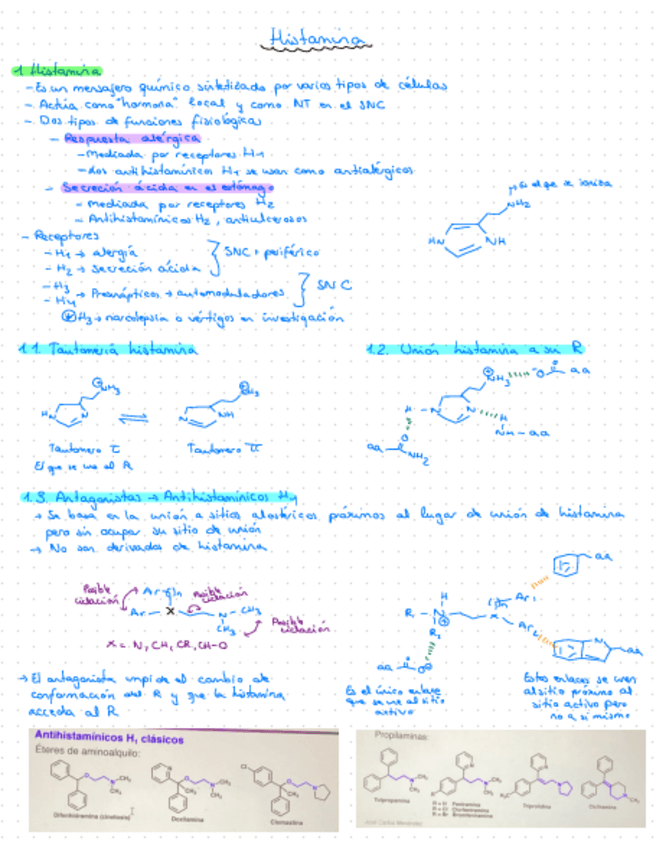 Histamina
1 Histamina
- Es un mensajero químico sintetizado por varios tipos de células
- Actúa como "hormona" local y como NT en el SNC
- Dos tipos de funciones fisiológicas
- Respuesta alérgica
- Mediada por receptores H1
- Los antihistamínicos H1 se usan como antialérgicos
- Secreción ácida en el estómago
- Mediada por receptores H2
- Antihistamínicos H2, antiulcerosos
Es el que se ioniza
NH2
HN
NH
- Receptores
- H1 → alergia
- H2 → secreción ácida
SNC + periférico
- H3
- H4
→ Presinápticos → automoduladores
SNC
H3 → narcolepsia o vértigos en investigación
1.1. Tautomería histamina
1.2. Unión histamina a su R
NH3
HN
N
NH3
N
NH
Tautómero τ
Tautómero π
El que se une al R
NH3
O
aa
H
N
N
H
NH-aa
aa
O
NH2
1.3. Antagonistas → Antihistamínicos H1
→ Se basa en la unión a sitios alostéricos próximos al lugar de unión de histamina
pero sin ocupar su sitio de unión
→ No son derivados de histamina
Posible
ciclación
Posible
ciclación
Ar
X
N
CH3
CH3
Posible
ciclación
X = N, CH, CR, CH-O
aa
H
R
N
R
X
Ar
Ar2
N
aa
aa
O
→ El antagonista impide el cambio de
conformación del R y que la histamina
acceda al R
Es el único enlace
que se une al sitio
activo
Estos enlaces se unen
al sitio próximo al
sitio activo pero
no a sí mismo
Antihistamínicos H1 clásicos
Éteres de aminoalquilo:
Difenhidramina (cinetosis)
Doxilamina
Clemastina
Propilaminas:
Tolpropamina
R = H Feniramina
R = Cl Clorfeniramina
R = Br Bromfeniramina
Triprolidina